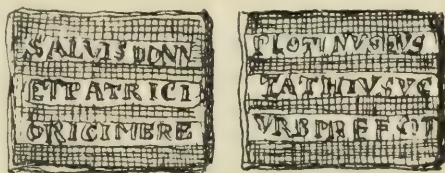 SALVISDDNN
ETPATRICI
ORICIMERE
PLOTINVSEVS
TATHIVSVC